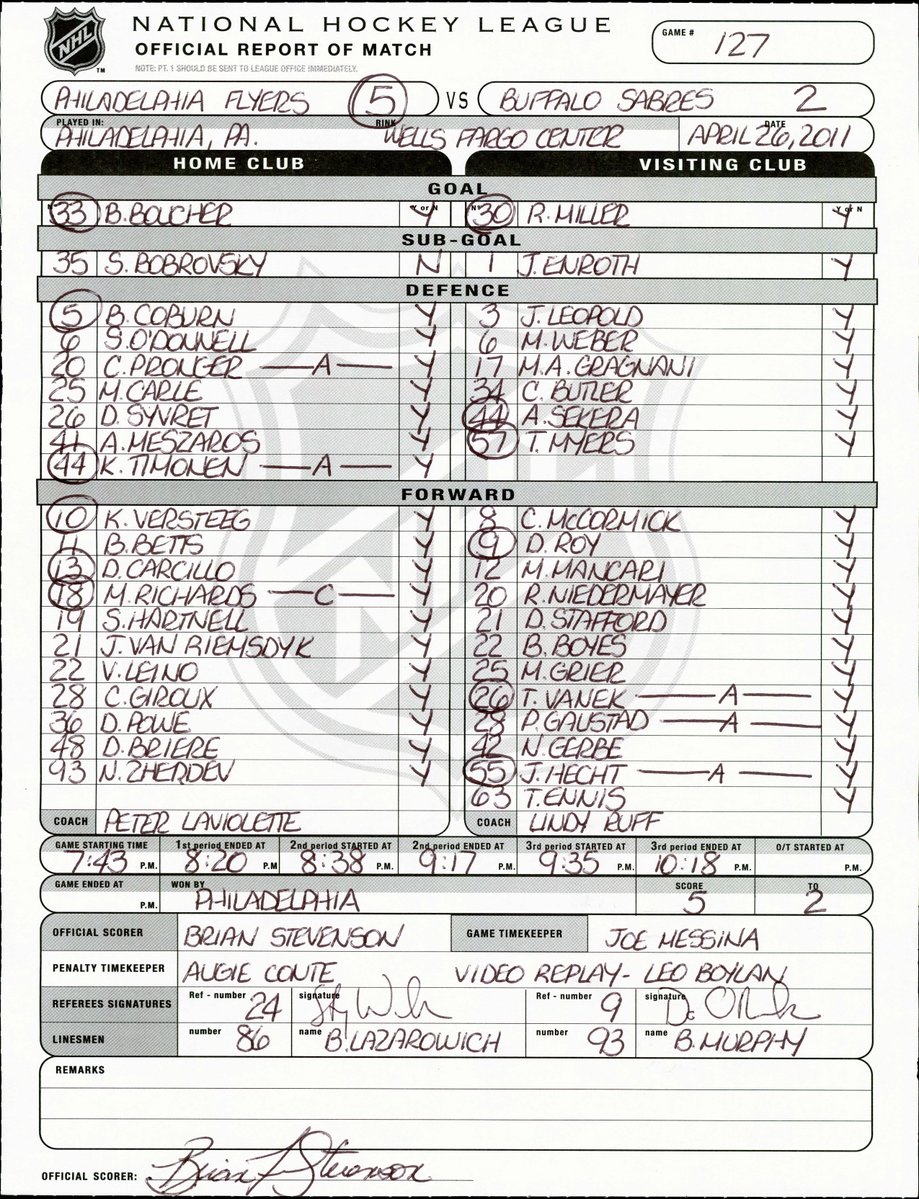 NHL
TM
NATIONAL HOCKEY LEAGUE
OFFICIAL REPORT OF MATCH
NOTE: PT. 1 SHOULD BE SENT TO LEAGUE OFFICE IMMEDIATELY.
GAME # 127
PHILADELPHIA FLYERS 5 VS BUFFALO SABRES 2
PLAYED IN: RINK DATE
PHILADELPHIA, PA. WELLS FARGO CENTER APRIL 26, 2011
HOME CLUB VISITING CLUB
GOAL
33 B. BOUCHER Y or N Y 30 R. MILLER Y or N Y
SUB-GOAL
35 S. BOBROVSKY N 1 J. ENROTH Y
DEFENCE
5 B. COBURN Y 3 J. LEOPOLD Y
6 S. O'DONNELL Y 6 M. WEBER Y
20 C. PRONGER —A— Y 17 M.A. GRAGNANI Y
25 M. CARLE Y 34 C. BUTLER Y
26 D. SYVRET Y 44 A. SEKERA Y
41 A. MESZAROS Y 57 T. MYERS Y
44 K. TIMONEN —A— Y
FORWARD
10 K. VERSTEEG Y 8 C. McCORMICK Y
11 B. BETTS Y 9 D. ROY Y
13 D. CARCILLO Y 12 M. MANCARI Y
18 M. RICHARDS —C— Y 20 R. NIEDERMAYER Y
19 S. HARTNELL Y 21 D. STAFFORD Y
21 J. VAN RIEMSDYK Y 22 B. BOYES Y
22 V. LEINO Y 25 M. GRIER Y
28 C. GIROUX Y 26 T. VANEK —A— Y
36 D. POWE Y 28 P. GAUSTAD —A— Y
48 D. BRIERE Y 42 N. GERBE Y
93 N. ZHERDEV Y 55 J. HECHT —A— Y
63 T. ENNIS Y
COACH PETER LAVIOLETTE COACH LINDY RUFF
GAME STARTING TIME 1st period ENDED AT 2nd period STARTED AT 2nd period ENDED AT 3rd period STARTED AT 3rd period ENDED AT O/T STARTED AT
7:43 P.M. 8:20 P.M 8:38 P.M. 9:17 P.M. 9:35 P.M. 10:18 P.M. P.M.
GAME ENDED AT WON BY SCORE TO
P.M. PHILADELPHIA 5 2
OFFICIAL SCORER BRIAN STEVENSON GAME TIMEKEEPER JOE MESSINA
PENALTY TIMEKEEPER AUGIE CONTE VIDEO REPLAY- LEO BOYLAN
REFEREES SIGNATURES Ref - number 24 signature Ref - number 9 signature
LINESMEN number 86 name B. LAZAROWICH number 93 name B. MURPHY
REMARKS
OFFICIAL SCORER: Brian F Stevenson